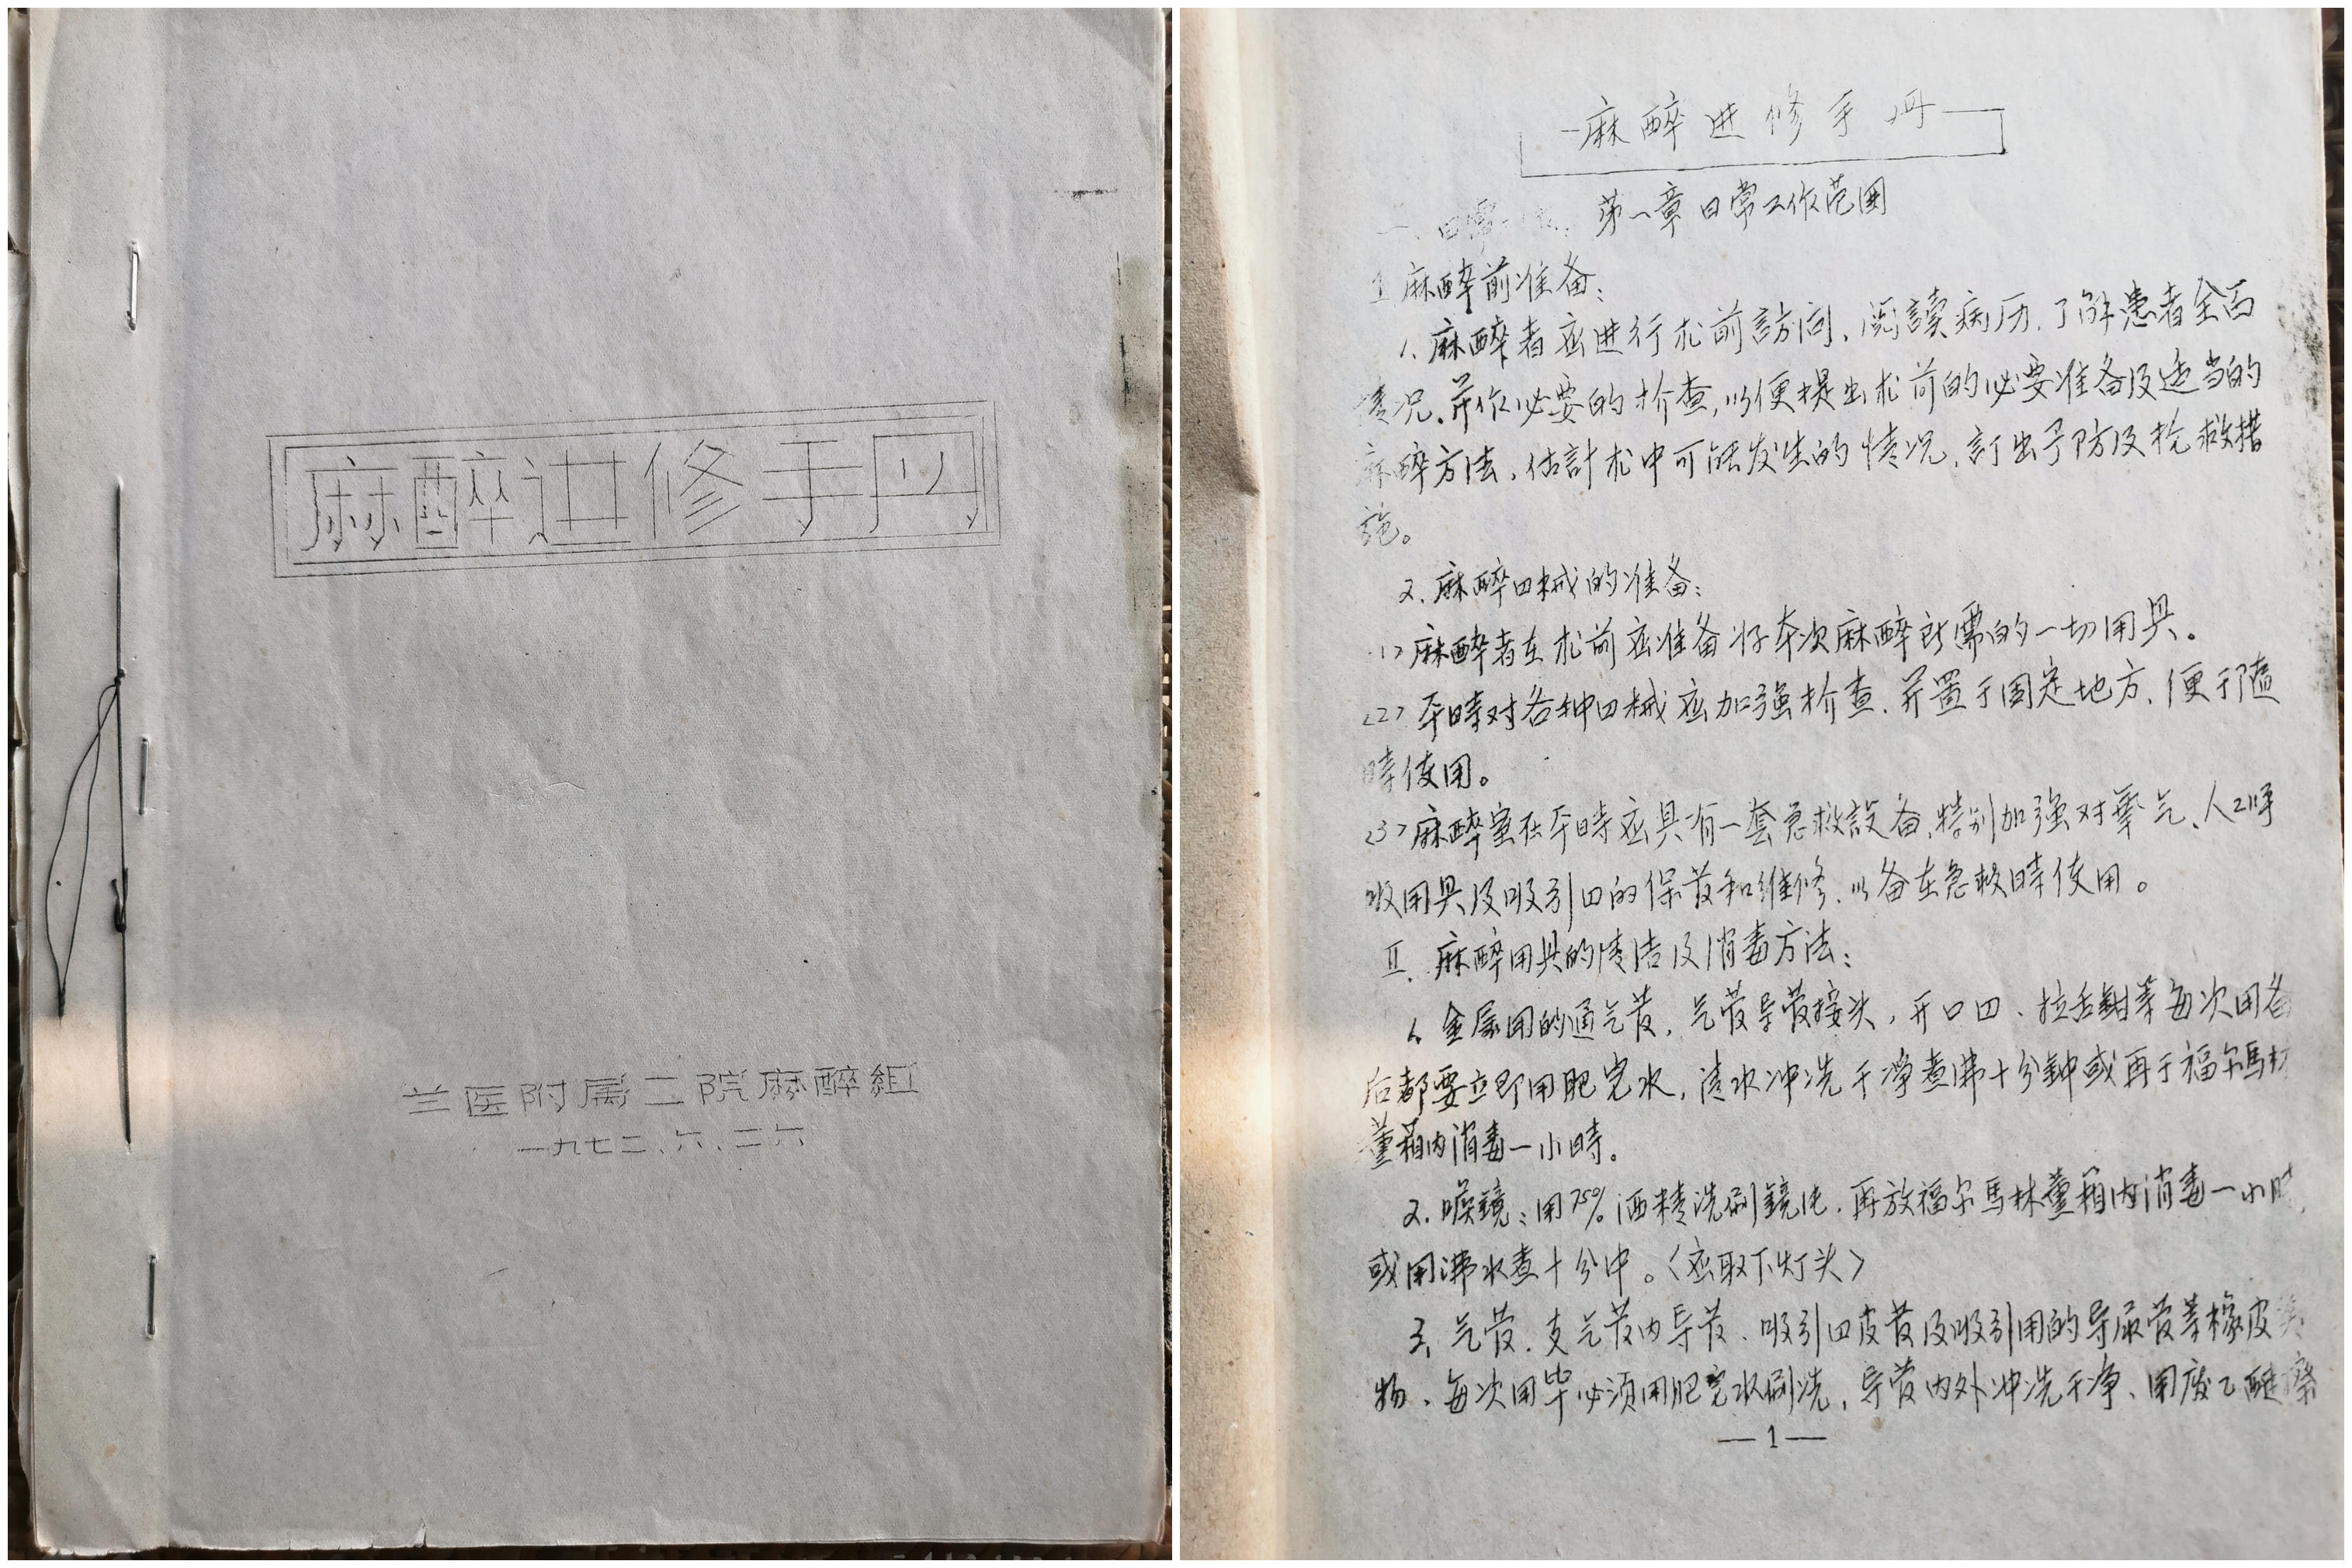 麻醉进修手册
兰医附属二院麻醉組
一九七二、六、二六
麻醉进修手册
第一章日常工作范围
I 麻醉前准备：
1、麻醉者应进行术前訪问、阅讀病历、了解患者全面
情况、并作必要的检查,以便提出术前的必要准备及适当的
麻醉方法，估計术中可能发生的情况，訂出予防及抢救措
施。
2、麻醉四械的准备：
<1>麻醉者在术前应准备好本次麻醉所需的一切用具。
<2>平時对各种四械应加强检查、并置于固定地方、便于随
時使用。
<3>麻醉室在平時应具有一套急救設备、特别加强对氧气、人工呼
吸用具及吸引四的保管和维修、以备在急救時使用。
II、麻醉用具的清洁及消毒方法：
1、金属用的通气管，气管导管接头，开口四、拉舌鉗等每次用畓
后都要立即用肥皂水，清水冲洗干净煮沸十分鈡或再于福尔馬林
薰箱内消毒一小時。
2、喉鏡：用75%酒精洗刷鏡片，再放福尔馬林薰箱内消毒一小時，
或用沸水煮十分中。<应取下灯头>
3、气管、支气管内导管、吸引四皮管及吸引用的导尿管等橡皮
物、每次用毕必须用肥皂水刷洗，导管内外冲洗干净、用废乙醚擦
—1—